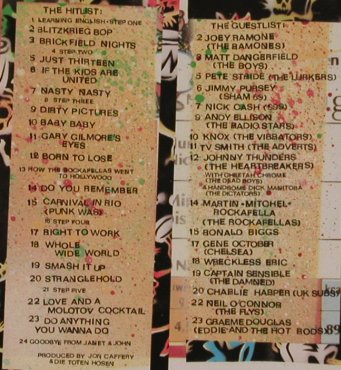 THE HITLIST:
1 LEARNING ENGLISH-STEP ONE
2 BLITZKRIEG BOP
3 BRICKFIELD NIGHTS
4 STEP TWO
5 JUST THIRTEEN
6 IF THE KIDS ARE
UNITED
7 NASTY NASTY
8 STEP THREE
9 DIRTY PICTURES
10 BABY BABY
11 GARY GILMORE'S
EYES
12 BORN TO LOSE
13 HOW THE ROCKAFELLAS WENT
TO HOLLYWOOD
14 DO YOU REMEMBER
15 CARNIVAL IN RIO
(PUNK WAS)
16 STEP FOUR
17 RIGHT TO WORK
18 WHOLE
WIDE WORLD
19 SMASH IT UP
20 STRANGLEHOLD
21 STEP FIVE
22 LOVE AND A
MOLOTOV COCKTAIL
23 DO ANYTHING
YOU WANNA DO
24 GOODBYE FROM JANET & JOHN
PRODUCED BY JON CAFFERY
& DIE TOTEN HOSEN
THE GUESTLIST:
2 JOEY RAMONE
(THE RAMONES)
3 MATT DANGERFIELD
(THE BOYS)
5 PETE STRIDE (THE LURKERS)
6 JIMMY PURSEY
(SHAM 69)
7 NICK CASH (999)
9 ANDY ELLISON
(THE RADIO STARS)
10 KNOX (THE VIBRATORS)
11 TV SMITH (THE ADVERTS)
12 JOHNNY THUNDERS
(THE HEARTBREAKERS)
WITH CHEETAH CHROME
(THE DEAD BOYS)
& HANDSOME DICK MANITOBA
(THE DICTATORS)
14 MARTIN-MITCHEL-
ROCKAFELLA
(THE ROCKAFELLAS)
15 RONALD BIGGS
17 GENE OCTOBER
(CHELSEA)
18 WRECKLESS ERIC
19 CAPTAIN SENSIBLE
(THE DAMNED)
20 CHARLIE HARPER (UK SUBS)
22 NEIL O'CONNOR
(THE FLYS)
23 GRAEME DOUGLAS
(EDDIE AND THE HOT RODS)